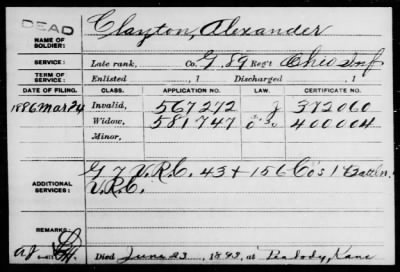 DEAD
NAME OF SOLDIER: Clayton, Alexander
SERVICE: Late rank, Co. G. 89 Reg't Ohio Inf
TERM OF SERVICE: Enlisted , 1 Discharged , 1
DATE OF FILING. CLASS. APPLICATION NO. LAW. CERTIFICATE NO.
1886 Mar 24 Invalid, 567272 382060
Widow, 581747 400004
Minor,
ADDITIONAL SERVICES: G 7 V.R.C. 43 + 156 Co's 1 Battln.
V.R.C.
REMARKS:
Died June 23, 1893, at Peabody, Kans